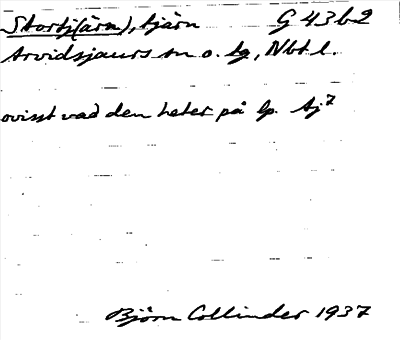 Stortj(ärn), tjärn G 43 b 2
Arvidsjaurs sn o. tg, Nbt l.
ovisst vad den heter på lp. Aj⁷
Björn Collinder 1937